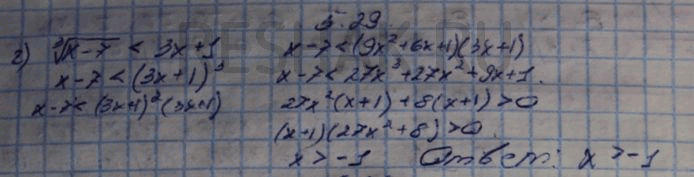 5.29
г) ∛(x-7) < 3x+1
x-7 < (3x+1)³
x-7 < (3x+1)²(3x+1)
x-7 < (9x²+6x+1)(3x+1)
x-7 < 27x³+27x²+9x+1.
27x²(x+1)+8(x+1)>0
(x+1)(27x²+8)>0.
x>-1 Ответ: x>-1